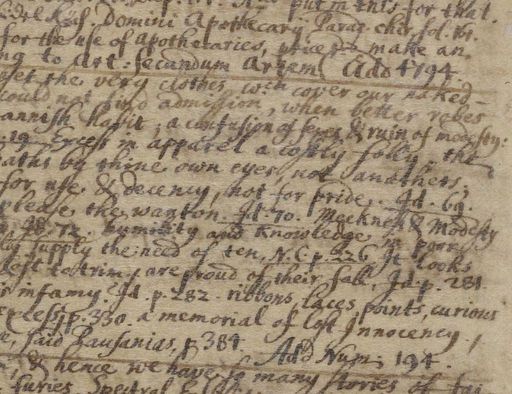 put in this for that.
Domini Apothecary. Paras. chir. fol.
for the use of Apothecaries, price make an
ng to Art. Secundum Artem Add 4794.
yet the very clothes wch cover our naked-
could not find admission, when better robes
mannish Habit, a confusion of sexes & ruin of modesty:
Excess in apparel a costly folly, the
aths by thine own eyes not anothers,
for use, & decency, not for pride. Id. 69.
please the wanton. Id. 70. Meekness & Modesty
p. 48. 72. Humility and Knowledge in poore
supply the need of ten, N. C. p. 226. It looks
left to trim, are proud of their fall, Id. p. 281.
r infamy. Id. p. 282. ribbons, laces, points, curious
less, p. 330 a memorial of lost Innocency,
said Pausanias, p. 384. Add Num. 194.
, & hence we have so many stories of fai
furies, Spectral